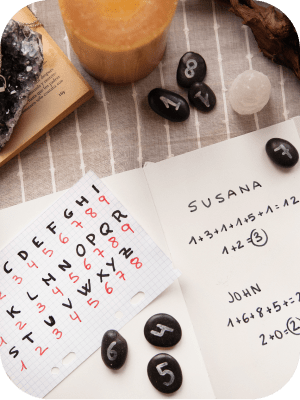 8
1
2
7
C D E F G H I
2 3 4 5 6 7 8 9
K L M N O P Q R
1 2 3 4 5 6 7 8 9
S T U V W X Y Z
1 2 3 4 5 6 7 8
SUSANA
1+3+1+1+5+1=12
1+2=3
JOHN
1+6+8+5=2
2+0=2
6
4
5